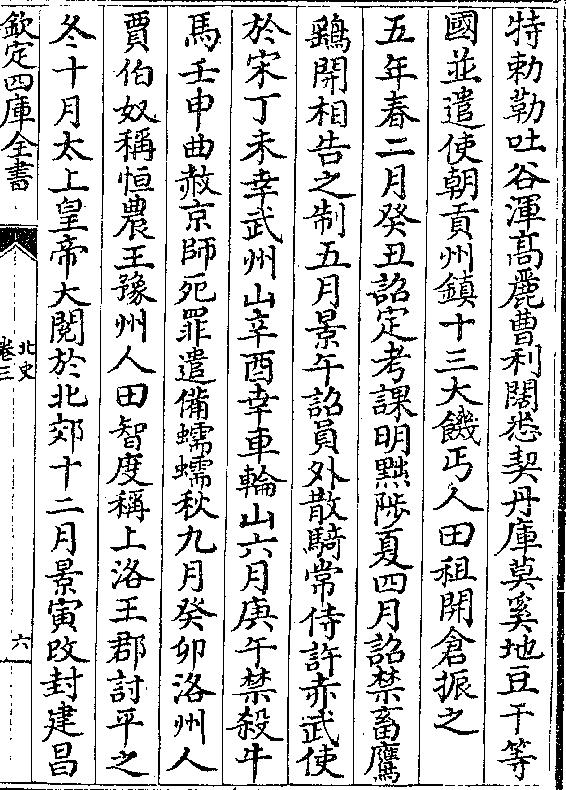 特勅勒吐谷渾高麗曹利闊悉契丹庫莫奚地豆干等
國並遣使朝貢州鎮十三大饑丐人田租開倉振之
五年春二月癸丑詔定考課明黜陟夏四月詔禁畜鷹
鷂開相告之制五月景午詔員外散騎常侍許赤武使
於宋丁未幸武州山辛酉幸車輪山六月庚午禁殺牛
馬壬申曲赦京師死罪遣備蠕蠕秋九月癸卯洛州人
賈伯奴稱恒農王豫州人田智度稱上洛王郡討平之
冬十月太上皇帝大閱於北郊十二月景寅改封建昌
欽定四庫全書
北史
卷三
六